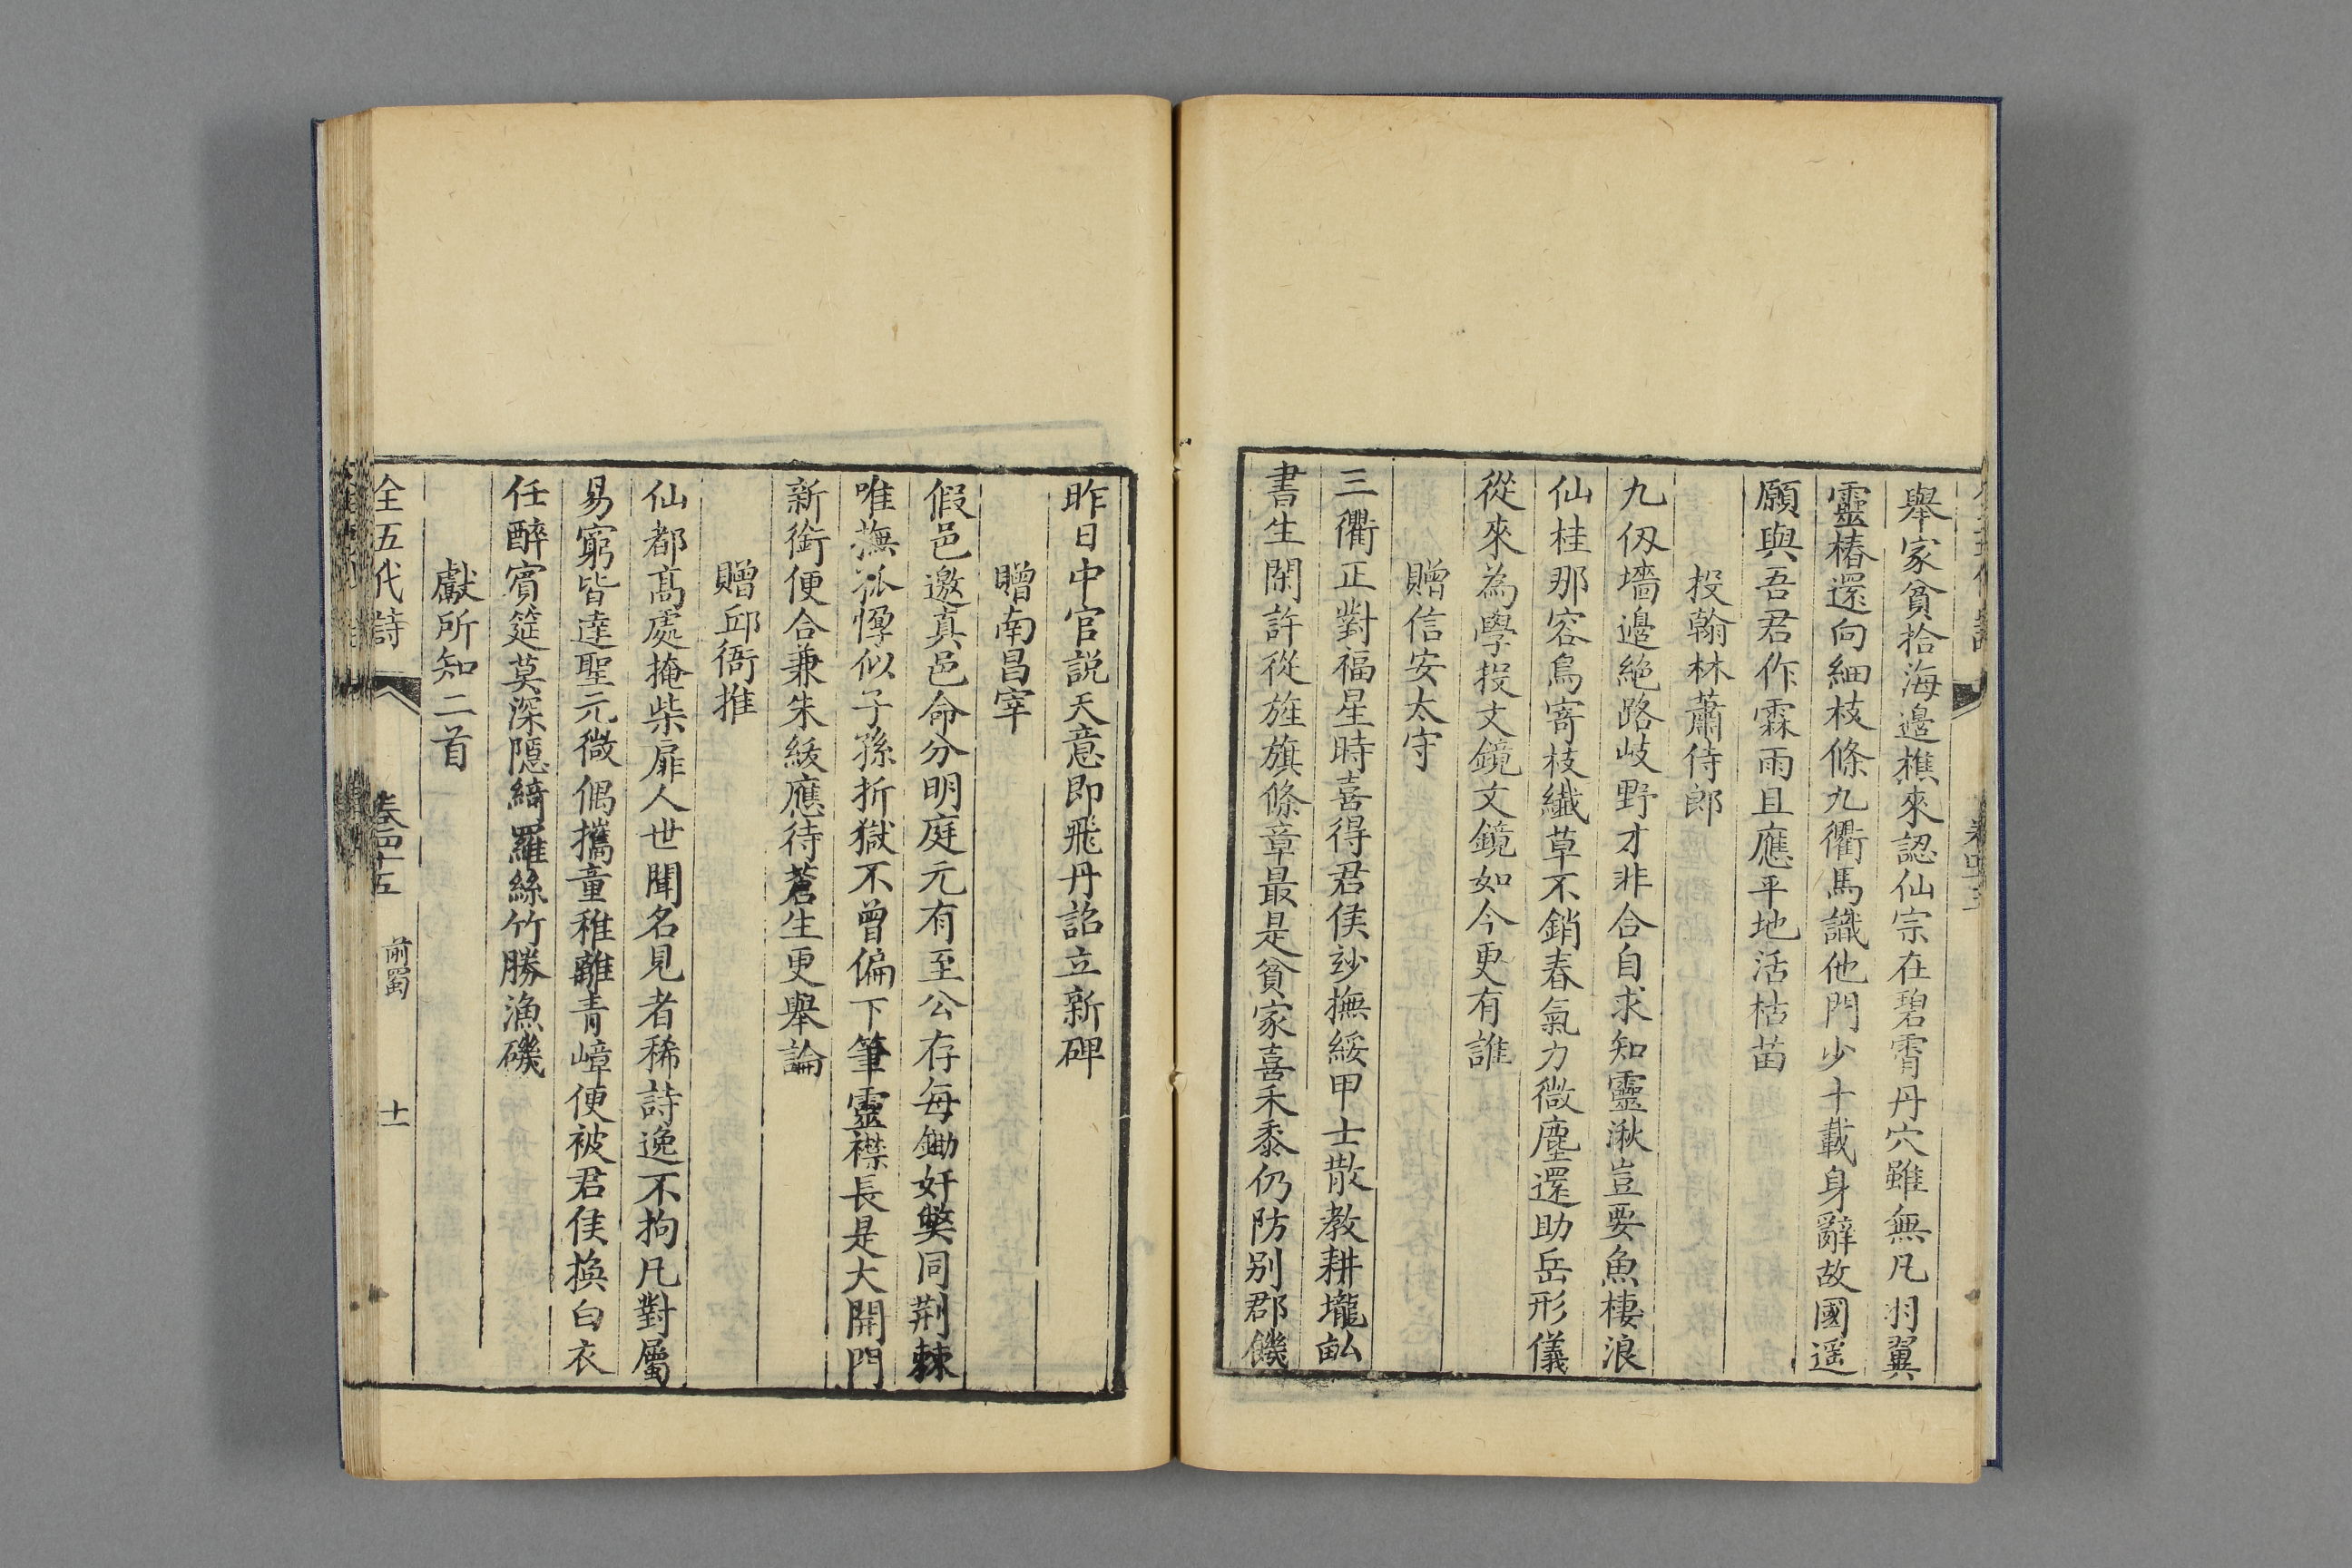 舉家貧拾海邊樵來認仙宗在碧霄丹穴雖無凡羽翼
靈椿還向細枝條九衢馬識他門少十載身辭故國遥
願與吾君作霖雨且應平地活枯苗
投翰林蕭侍郎
九仭墻邊絶路岐野才非合自求知靈湫豈要魚棲浪
仙桂那容鳥寄枝纖草不銷春氣力微塵還助岳形儀
從來為學投文鏡文鏡如今更有誰
贈信安太守
三衢正對福星時喜得君侯妙撫綏甲士散教耕壠畝
書生閑許從旌旗條章最是貧家喜禾黍仍防别郡饑
昨日中官説天意即飛丹詔立新碑
贈南昌宰
假邑邀真邑命分明庭元有至公存每鋤奸弊同荆棘
唯撫孤惸似子孫折獄不曾偏下筆靈襟長是大開門
新銜便合兼朱紱應待蒼生更舉論
贈邱衙推
仙都高處掩柴扉人世聞名見者稀詩逸不拘凡對屬
易窮皆達聖元微偶攜童稚離青嶂便被君侯換白衣
任醉賓筵莫深隱綺羅絲竹勝漁磯
獻所知二首
全五代詩 卷四十五 前蜀 十一